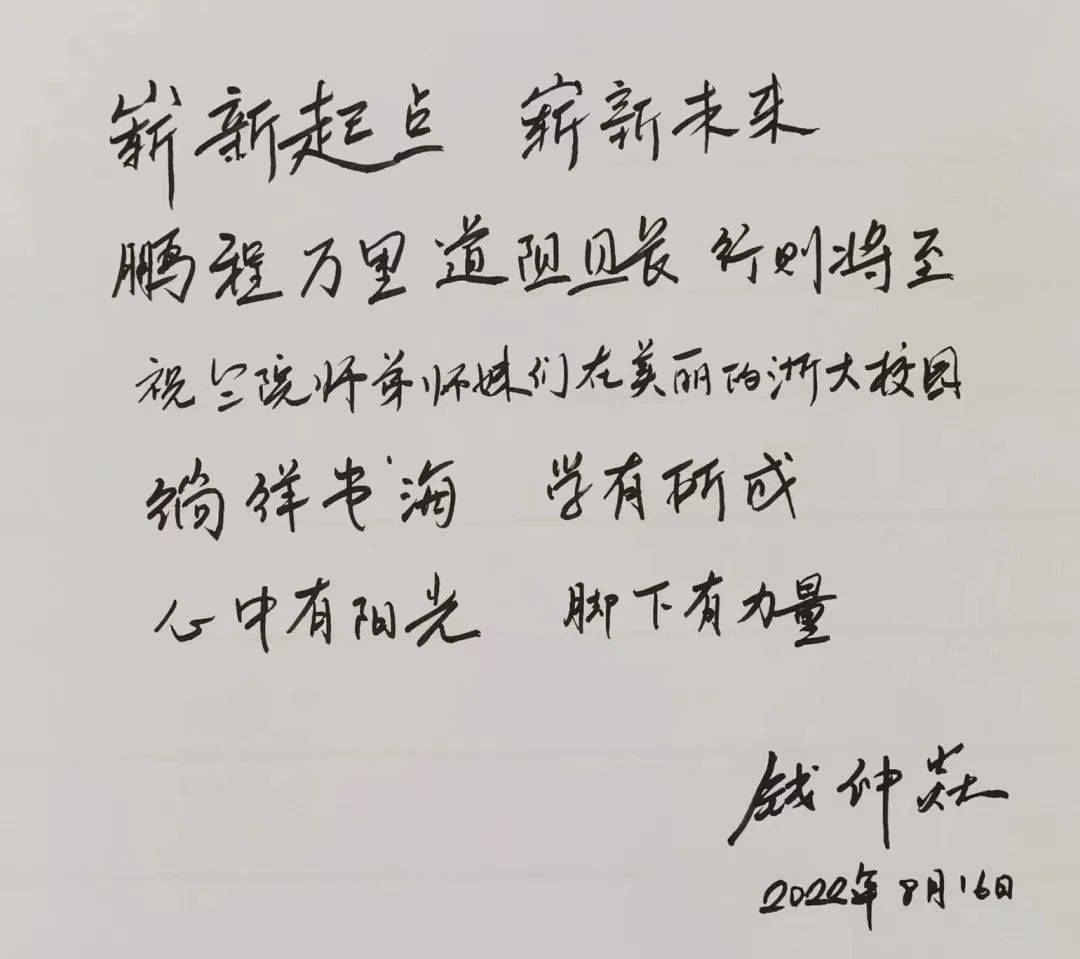 崭新起点 崭新未来
鹏程万里 道阻且长 行则将至
祝竺院师弟师妹们在美丽的浙大校园
徜徉书海 学有所成
心中有阳光 脚下有力量
钱仲焱
2022年8月16日